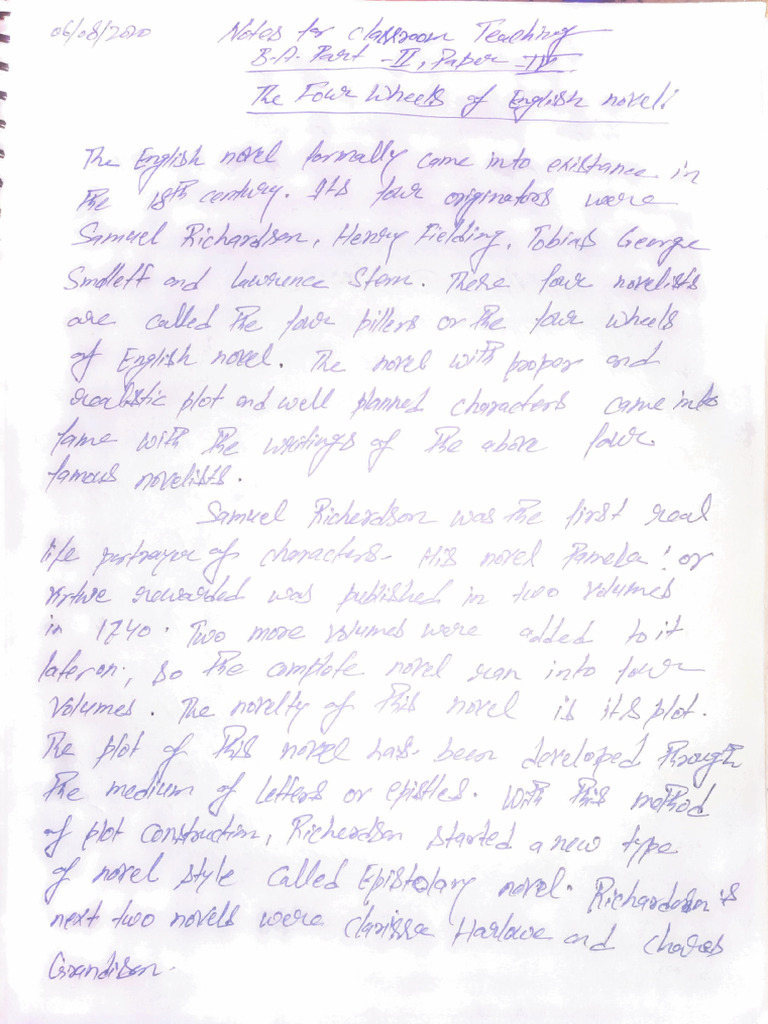 06/08/2020 Notes for Classroom Teaching
B.A. Part-II, Paper-IV
The Four Wheels of English novel:
The English novel formally came into existance in
the 18th century. Its four originators were
Samuel Richardson, Henry Fielding, Tobias George
Smollett and Lawrence Stern. These four novelists
are called the four pillers or the four wheels
of English novel. The novel with proper and
realistic plot and well planned characters came into
fame with the writings of the above four
famous novelists.
Samuel Richardson was the first real
life portrayor of characters. His novel Pamela: or
virtue rewarded was published in two volumes
in 1740. Two more volumes were added to it
later on, so the complete novel ran into four
volumes. The novelty of this novel is its plot.
The plot of this novel has been developed through
the medium of letters or epistles. With this method
of plot construction, Richardson started a new type
of novel style called Epistolary novel. Richardson's
next two novels were Clarissa Harlowe and Charles
Grandison.